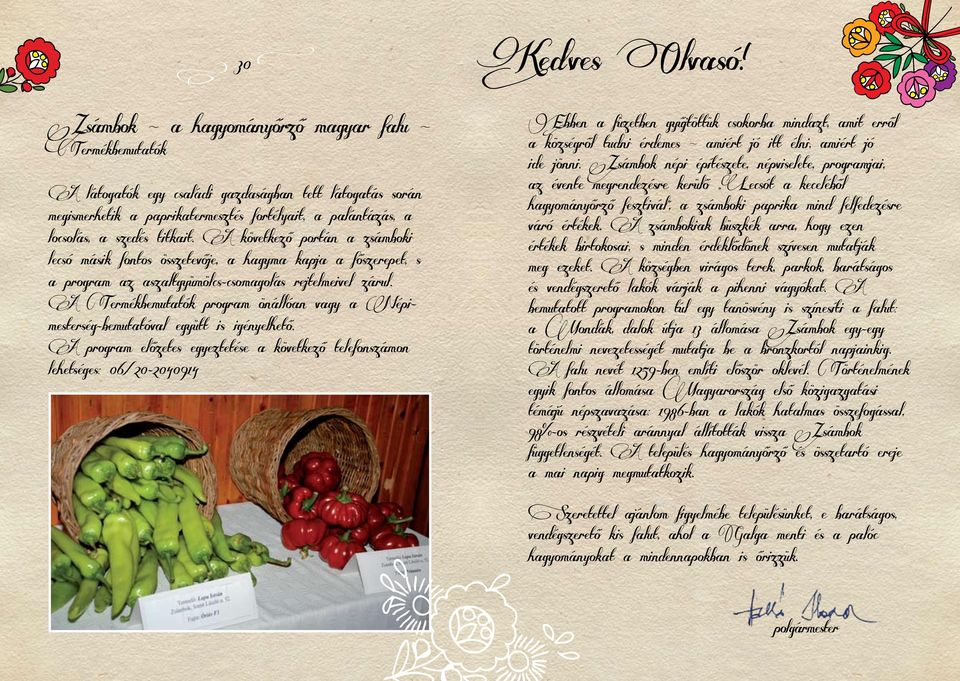 30
Zsámbok ~ a hagyományőrző magyar falu ~
Termékbemutatók
A látogatók egy családi gazdaságban tett látogatás során
megismerhetik a paprikatermesztés fortélyait, a palántázás, a
locsolás, a szedés titkait. A következő portán a zsámboki
lecsó másik fontos összetevője, a hagyma kapja a főszerepet, s
a program az aszaltgyümölcs-csomagolás rejtelmeivel zárul.
A Termékbemutatók program önállóan vagy a Népi-
mesterség-bemutatóval együtt is igényelhető.
A program előzetes egyeztetése a következő telefonszámon
lehetséges: 06/20-2040914
Termelő: Lapu István
Zsámbok, Szent László u. 52.
Fajta: Óriás-F1
Termelő: Lapu István
Kedves Olvasó!
Ebben a füzetben gyűjtöttük csokorba mindazt, amit erről
a községről tudni érdemes ~ amiért jó itt élni, amiért jó
ide jönni. Zsámbok népi építészete, népviselete, programjai,
az évente megrendezésre kerülő „Lecsót a kecelébő”
hagyományőrző fesztivál, a zsámboki paprika mind felfedezésre
váró értékek. A zsámbokiak büszkék arra, hogy ezen
értékek birtokosai, s minden érdeklődőnek szívesen mutatják
meg ezeket. A községben virágos terek, parkok, barátságos
és vendégszerető lakók várják a pihenni vágyókat. A
bemutatott programokon túl egy tanösvény is színesíti a falut:
a Mondák, dalok útja 13 állomása Zsámbok egy-egy
történelmi nevezetességét mutatja be a bronzkortól napjainkig.
A falu nevét 1259-ben említi először oklevél. Történelmének
egyik fontos állomása Magyarország első közigazgatási
témájú népszavazása: 1986-ban a lakók hatalmas összefogással,
98%-os részvételi aránnyal állították vissza Zsámbok
függetlenségét. A település hagyományőrző és összetartó ereje
a mai napig megmutatkozik.
Szeretettel ajánlom figyelmébe településünket, e barátságos,
vendégszerető kis falut, ahol a Galga menti és a palóc
hagyományokat a mindennapokban is őrizzük.
polgármester